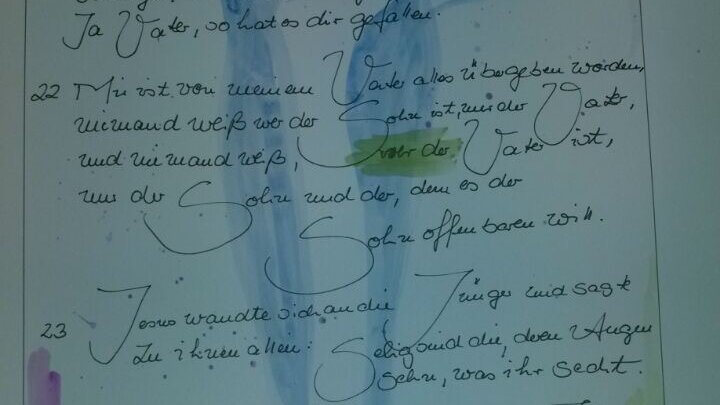 Ja Vater, so hat es dir gefallen.
22 Mir ist von meinem Vater alles übergeben worden,
niemand weiß wer der Sohn ist, nur der Vater,
und niemand weiß, wer der Vater ist,
nur der Sohn und der, dem es der
Sohn offenbaren will.
23 Jesus wandte sich an die Jünger und sagte
zu ihnen allen: Selig sind die, deren Augen
sehn, was ihr seht.